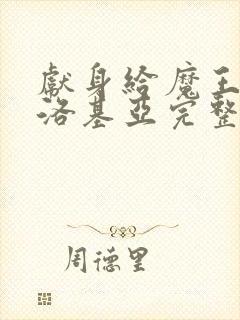 獻身給魔王
洛基亞完整
周德里